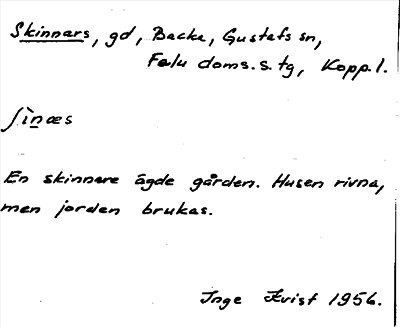 Skinnars, gd, Backa, Gustafs sn,
Falu doms. s. tg, Kopp. l.
ʃìnæs
En skinnare ägde gården. Husen rivna,
men jorden brukas.
Inge Kvist 1956.